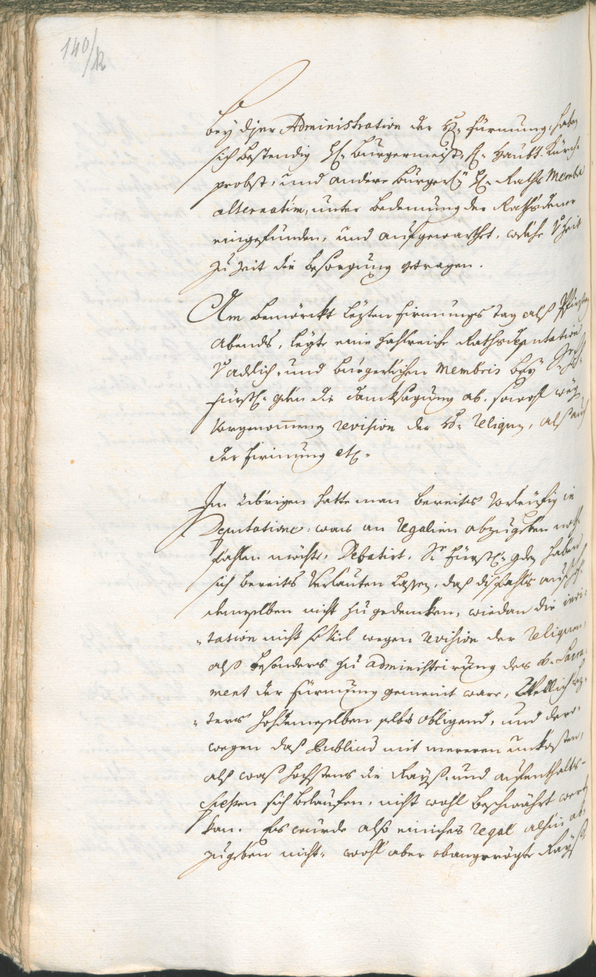 140/12
Bey diser Administration der H: Firmung, haben
sich bestendig H: Burgermeister, H:
probst, und andere Burgerl: H: Raths Membra
alternatim, unter bedienung der Rathsdiener
eingefunden, und aufgewarthet, welche
zu Zeit die besorgung getragen.
Am bemörckt lezten Firmungs tag alß
Abends, legte eine zahlreiche Raths deputation
Adelich- und burgerlichen Membris bey
fürstl: gden die dancksagung ab, sowohl weg
vorgenommene revision der H: Reliquien, alß auch
der Firmung etc:
Im übrigen hatte man bereits vorleüfig in
Deputatione, was an Regalien abzugeben
fahlen möchte, Debatirt. Se: fürstl: gden haben
sich bereits verlauten lassen, daß dißfahls auf
demselben nicht zu gedencken, wiedan die invi-
tation nicht so viel wegen revision der Reliquien,
alß besonders zu administrirung des h: Sacra-
ment der Firmung gemeint ware, welch
-ters hochdemselben selbs obligend, und dero-
wegen das Publicum mit mereren unkosten,
alß was hochstens die Rayß- und aufenthalts-
spesen sich belaufen, nicht wohl beschwährt werden
kan. Es wurde also einiches Regal alhin ab-
zugeben nicht, wohl aber obangeregte Rayß